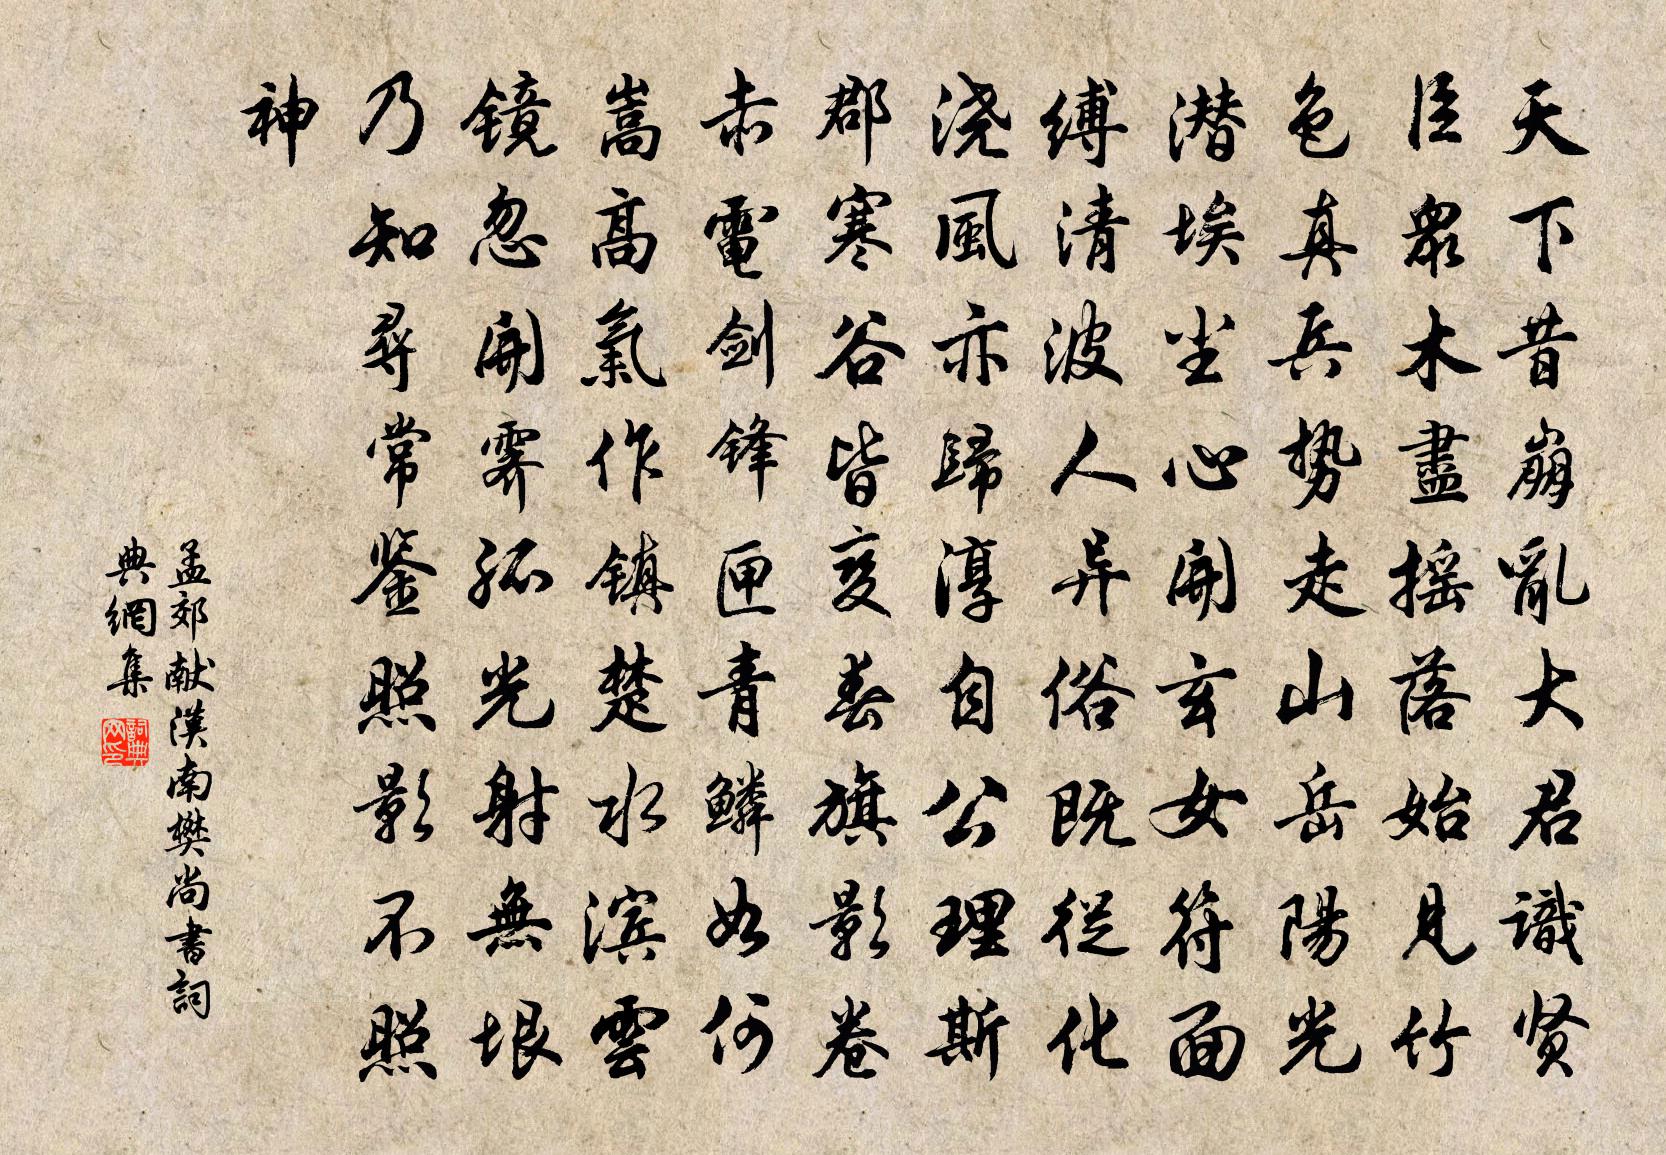 天下昔崩亂大君識贤
臣衆木盡摇落始見竹
色真兵势走山岳陽光
潜埃尘心開玄女符面
缚清波人异俗既從化
浇風亦歸淳自公理斯
郡寒谷皆变春旗影卷
赤電剑锋匣青鳞如何
嵩高氣作镇楚水滨雲
镜忽開霁孤光射無垠
乃知尋常鉴照影不照
神
孟郊献漢南樊尚書詞
典網集
詞典网印